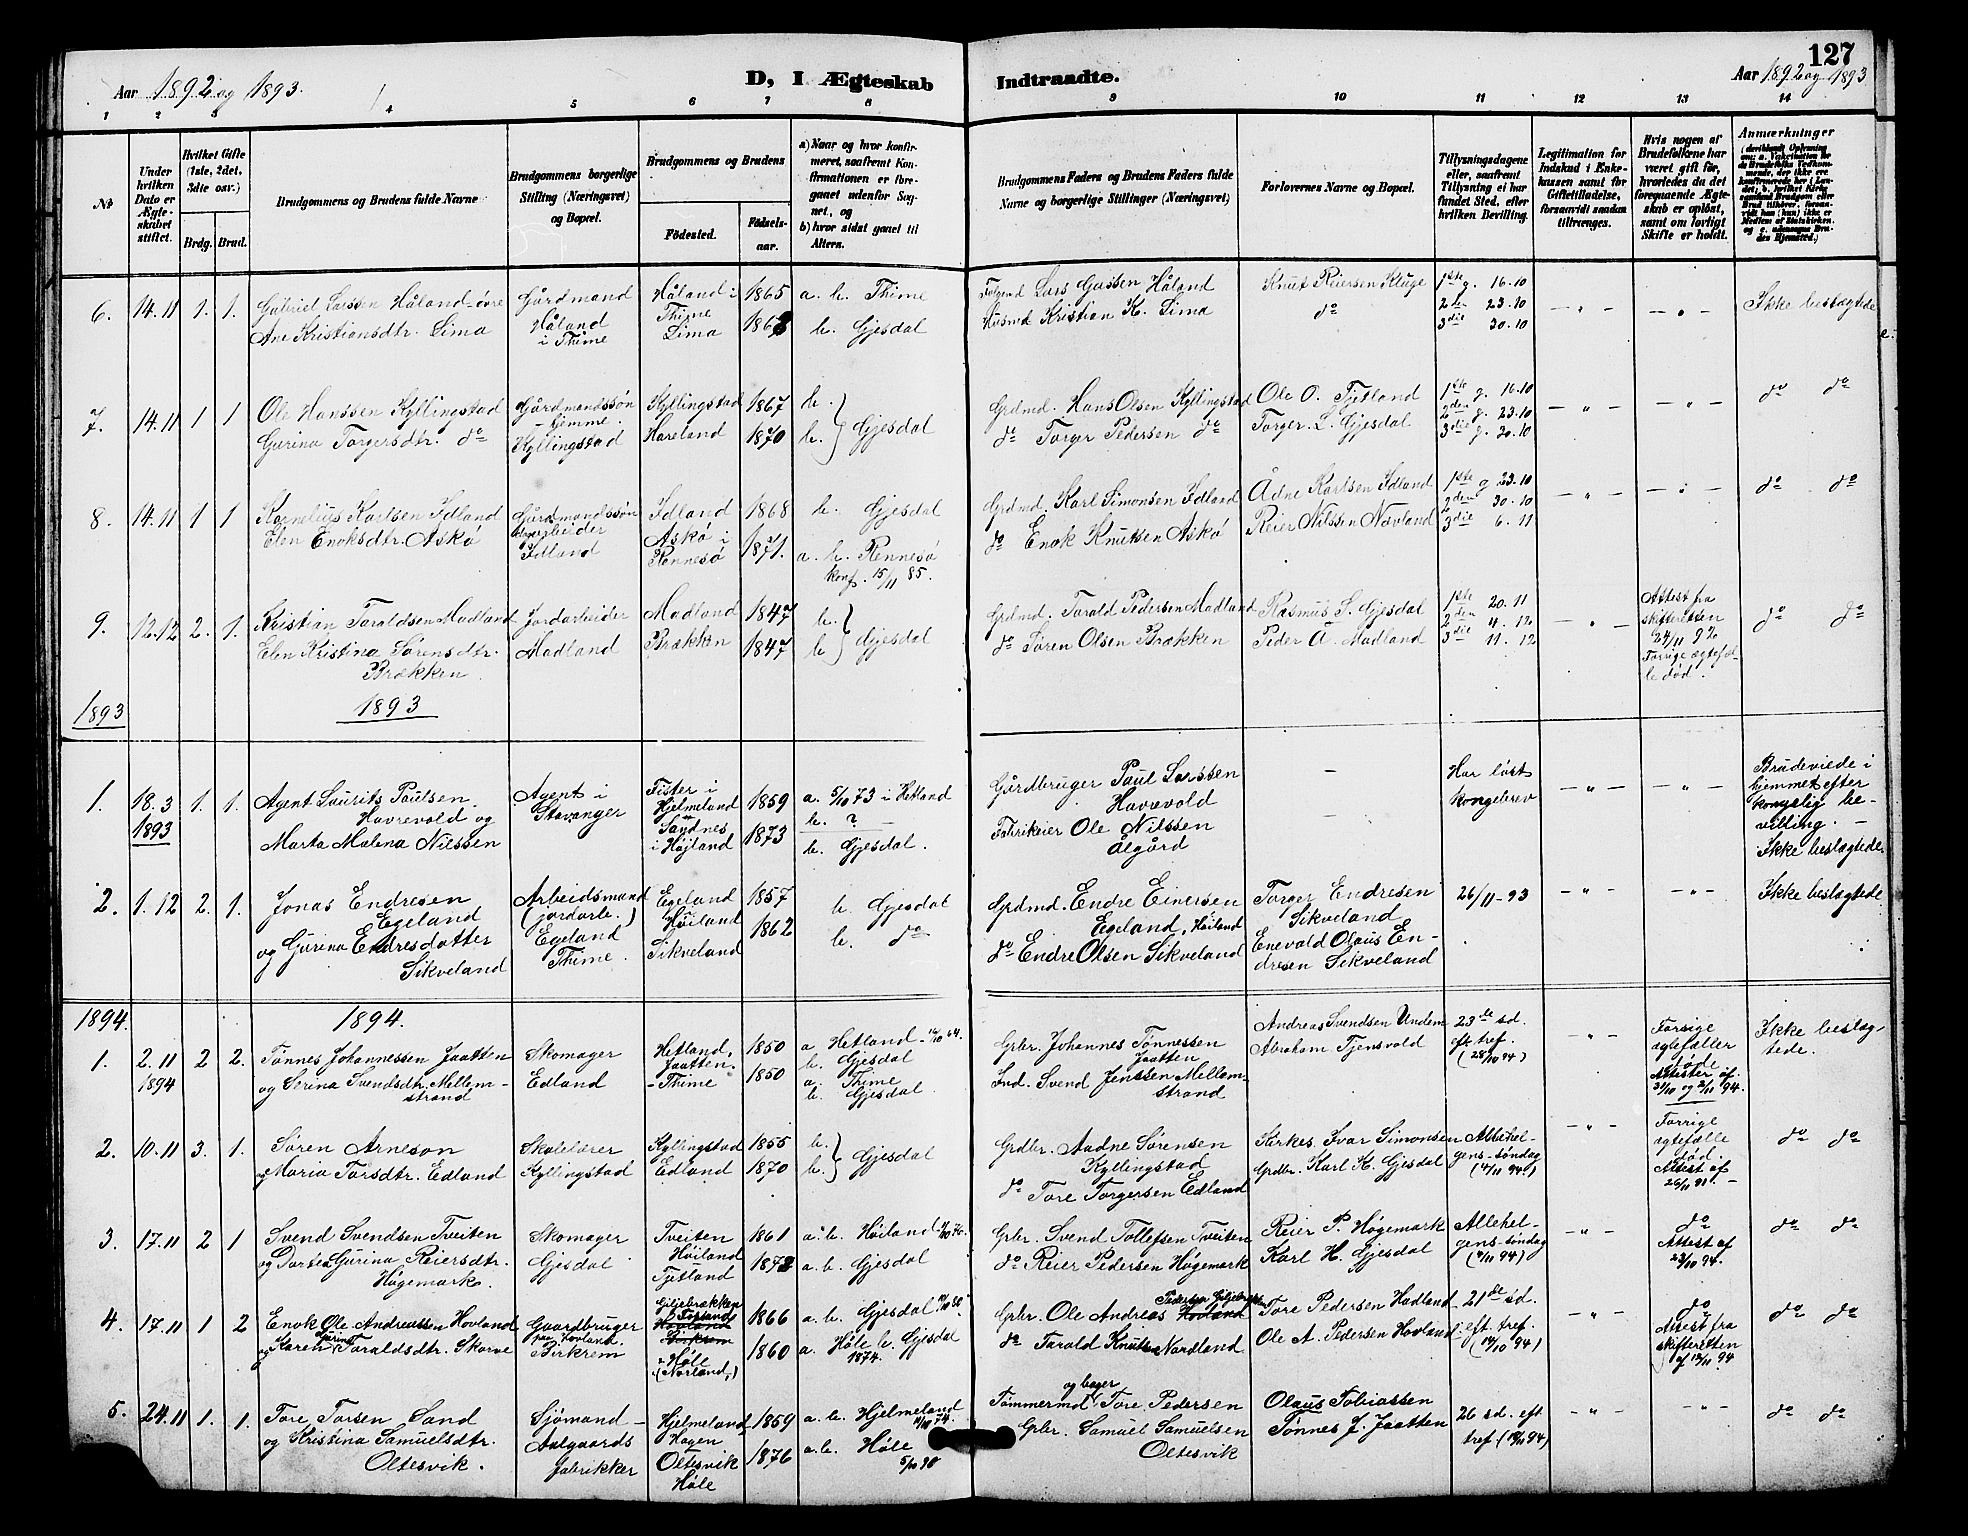 127
Aar 1892 og 1893.
D, I Ægteskab
Indtraadte.
Aar 1892 og 1893
1 2 3 4 5 6 7 8
9 10 11 12 13 14
№
Under hvilken Dato er Ægteskabet stiftet.
Hvilket Gifte (1ste, 2det, 3die osv.)
Brdg. Brud.
Brudgommens og Brudens fulde Navne
Brudgommens borgerlige Stilling (Næringsvei) og Bopæl.
Brudgommens og Brudens
Fødested.
Fødselsaar.
a) Naar og hvor konfirmeret, saafremt Konfirmationen er foregaaet udenfor Sognet, og
b) hvor sidst gaaet til Alters.
Brudgommens Faders og Brudens Faders fulde Navne og borgerlige Stillinger (Næringsvei)
Forlovernes Navne og Bopæl.
Tillysningsdagene eller, saafremt Tillysning ei har fundet Sted, efter hvilken Bevilling.
Legitimation for Indskud i Enkekassen samt for Giftetilladelse, forsaavidt saadan tiltrænges.
Hvis nogen af Brudefolkene har været gift før, hvorledes da det foregaaende Ægteskab er opløst, samt om lovligt Skifte er holdt.
Anmærkninger
6. 14.11 1. 1. Gabriel Larssen Håland øvre Gårdmand Håland i 1865 a. b. Thime
Ane Kristiansdtr. Lima Håland i Thime Thime Lima 1868 b. Gjesdal
Følgemd Lars Gassen Håland Knut Reiersen Kluge 1ste g. 16.10 Ikke beslægtede
Husmd Kristian K. Lima do 2den 23.10
3die 30.10
7. 14.11 1 1 Ole Hanssen Kyllingstad Gårdmandssøn Kyllingstad 1867 b.
Gurina Torgersdtr. do hjemme. Kyllingstad Hareland 1870 b. Gjesdal
Grdmd. Hans Olsen Kyllingstad Ole O. Fjetland 1ste g. 16.10 do do
do Torger Pedersen do Torger L. Gjesdal 2den g. 23.10
3die g. 30.10
8. 14.11 1 1 Kornelius Karlsen Idland Gårdmandssøn Idland 1868 b. Gjesdal
Elen Enoksdtr. Askø Idland Askø i Rennesø 1871. a. b. Rennesø
konf. 15/11 85.
Grdmd. Karl Simonsen Idland Ådne Karlsen Idland 1ste g 23.10 do do
do Enok Knutsen Askø Reier Nilssen Nævland 2den 30.10
3die 6.11
9. 12.12 2. 1. Kristian Taraldsen Madland Jordarbeider Madland 1847 b.
Elen Kristina Sørensdtr. Madland Brækken 1847 b. Gjesdal
Brækken
Grdmd. Tarald Pedersen Madland Rasmus S. Gjesdal 1ste 20.11 Attest fra do do
do Søren Olsen Brækken Peder A. Madland 2den 4.12 skifteretten
3die 11.12 24/11 92.
Forrige ægtefælle død.
1893 1893
1. 18.3 1893 1. 1. Agent Laurits Paulsen Agent i Fister i Hjelmeland 1859 a. 5/10 73 i Hetland
Havrevold og Stavanger Sandnes b. ?
Marta Malena Nilssen i Højland 1873 b. Gjesdal.
Gårdbruger Paul Larssen Har løst Brudeviede i
Havrevold kongebrev hjemmet efter
Fabrikeier Ole Nilssen kongelig be-
Ålgård villing. –
Ikke beslægtede.
2. 1.12 2. 1. Jonas Endresen Arbeidsmand Egeland 1857 b. Gjesdal
Egeland (jordarb.) Høiland
og Gurina Endresdatter Egeland Sikveland 1862 b. do
Sikveland Thime.
Grdmd. Endre Einersen Torger Endresen 26/11-93 Ikke beslægtede
Egeland, Høiland Sikveland
do Endre Olsen Sikveland Enevold Olaus En-
dresen Sikveland
1894. 1894.
1. 2.11 1894 2 2. Tønnes Johannessen Jaatten Skomager Hetland, 1850 a Hetland 16/10 64.
og Serina Svendsdtr. Mellem- Edland Jaatten. b. Gjesdal
strand Thime 1850 a. Thime
b. Gjesdal.
Grbr. Johannes Tønnessen Andreas Svendsen Undem 23de sd. Forrige Ikke beslæg-
Jaatten Abraham Tjensvold eft. tref. ægtefæller tede.
Ind. Svend Jenssen Mellem- (28/10 94) døde
strand Attester af
31/10 og 2/11 94.
2. 10.11 3. 1. Søren Arneson Skolelærer Kyllingstad 1855 b.
og Maria Torsdtr. Edland Kyllingstad Edland 1870 b. Gjesdal
Grdbr. Aadne Sørensen Kirkes. Ivar Simonsen Allehel- Forrige do do
Kyllingstad Grdbr. Karl H. Gjesdal gens-søndag ægtefælle
do Tore Torgersen Edland (4/11 94.) død.
Attest af
26/11 91. –
3. 17.11 2 1 Svend Svendsen Tveiten Skomager Tveiten 1861 a. b. Høiland
og Dortea Gurina Reiersdtr. Gjesdal Høiland
Høgemark. Fjetland 1872 a. b. Gjesdal
Grbr. Svend Tollefsen Tveiten Reier P. Høgemark Allehel- do do do
do Reier Pedersen Høgemark Karl H. Gjesdal gens-søndag Attest af
(4/11 94) 23/10 94.
4. 17.11 1 2 Enok Ole Andreassen Hovland Gaardbruger Giljebrækken 1866 a. b. Gjesdal
og Karen Taraldsdtr. Skorve paa Hovland, Birkrem Hovland Birkrem
Høle (Norland,) 1860 a. Høle b. Gjesdal
1874.
Grbr. Ole Andreas Pedersen Hovland Tore Pedersen Hadland 21de sd. do do do
do Tarald Knutsen Nordland Ole A. Pedersen Hovland eft. tref. Attest fra
(14/10 94) skifteretten
af 12/11 94
5. 24.11 1. 1. Tore Torsen Sand Sjømand – Hjelmeland 1859 a. b. Hjelmeland
og Kristina Samuelsdtr. Aalgaards Hagen 4/10 74.
Oltesvik. fabrikker Oltesvik 1876 a. b. Høle
Høle 5/10 90
og bager
Tømmermd. Tore Pedersen Olaus Tobiassen 26 sd. eft do do
Grbr. Samuel Samuelsen Tønnes J. Jaatten tref. (18/11 94)
Oltesvik